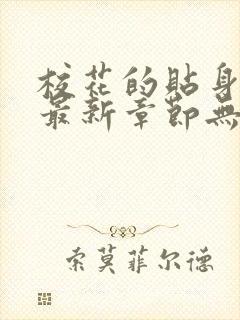 校花的貼身
最新章節無
索莫菲尔德